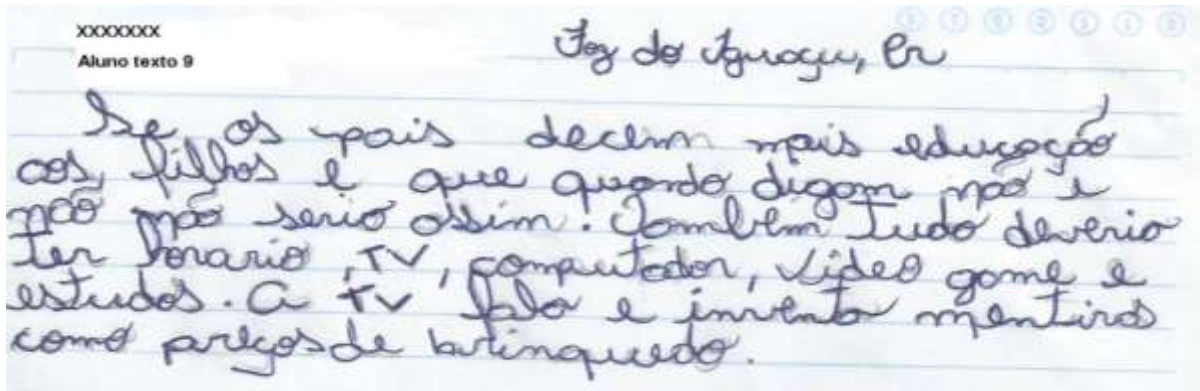 XXXXXXX
Aluno texto 9
Foz do Iguaçu, Pr
Se os pais decem mais educação
aos filhos e que quando digam não é
não não serio assim. Tambem tudo deverio
ter horario, TV, computador, video game e
estudos. A TV fala e inventa mentiras
como preços de brinquedo.